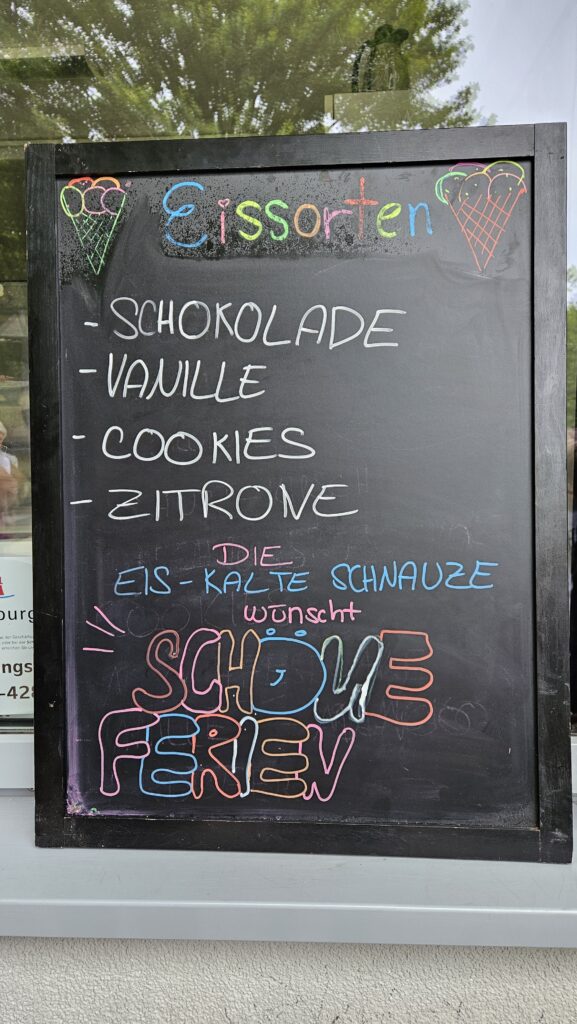 Eissorten
- SCHOKOLADE
- VANILLE
- COOKIES
- ZITRONE
DIE
EIS-KALTE SCHNAUZE
wünscht
SCHÖNE
FERIEN
burg
ngs
-428